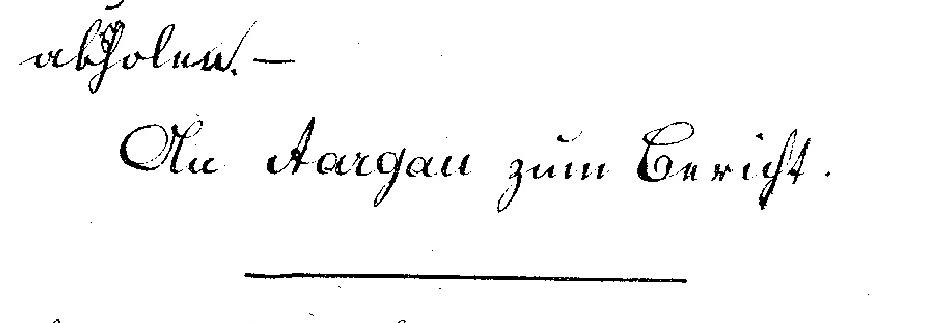 abholen. —
An Aargau zum Bericht.